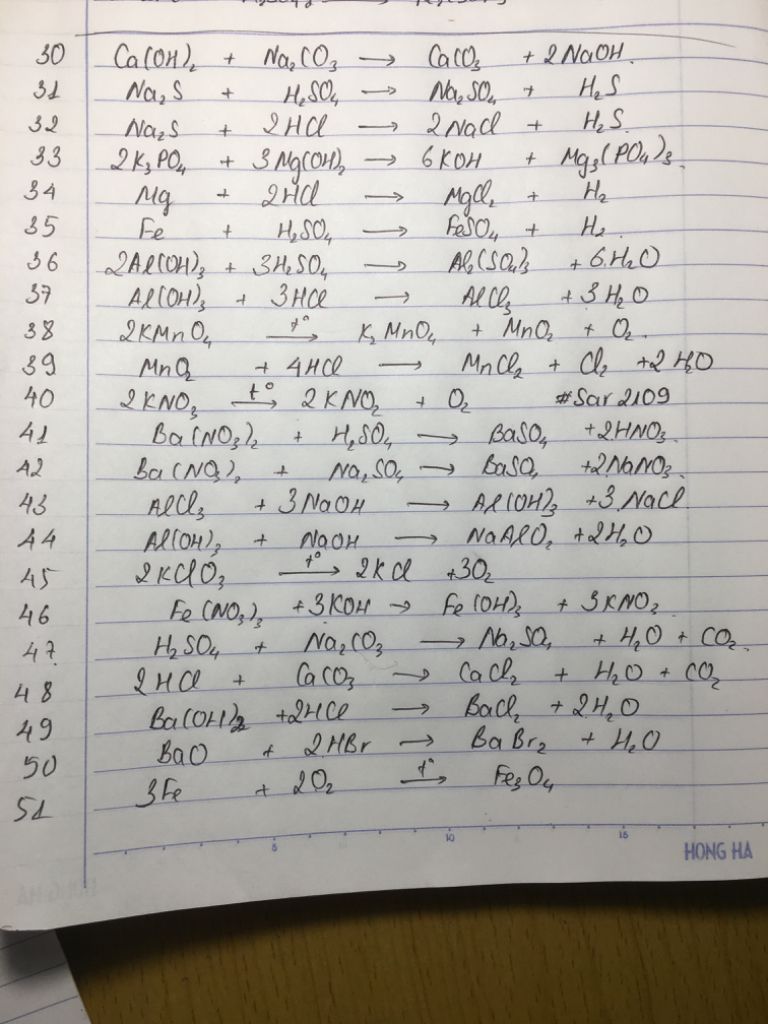 30 Ca(OH)₂ + Na₂CO₃ → CaCO₃ + 2NaOH.
31 Na₂S + H₂SO₄ → Na₂SO₄ + H₂S
32 Na₂S + 2HCl → 2NaCl + H₂S.
33 2K₃PO₄ + 3Mg(OH)₂ → 6KOH + Mg₃(PO₄)₃.
34 Mg + 2HCl → MgCl₂ + H₂
35 Fe + H₂SO₄ → FeSO₄ + H₂.
36 2Al(OH)₃ + 3H₂SO₄ → Al₂(SO₄)₃ + 6H₂O
37 Al(OH)₃ + 3HCl → AlCl₃ + 3H₂O
38 2KMnO₄ t°→ K₂MnO₄ + MnO₂ + O₂.
39 MnO₂ + 4HCl → MnCl₂ + Cl₂ + 2H₂O
40 2KNO₃ t°→ 2KNO₂ + O₂ #Sar2109
41 Ba(NO₃)₂ + H₂SO₄ → BaSO₄ + 2HNO₃.
42 Ba(NO₃)₂ + Na₂SO₄ → BaSO₄ + 2NaNO₃.
43 AlCl₃ + 3NaOH → Al(OH)₃ + 3NaCl.
44 Al(OH)₃ + NaOH → NaAlO₂ + 2H₂O
45 2KClO₃ t°→ 2KCl + 3O₂
46 Fe(NO₃)₃ + 3KOH → Fe(OH)₃ + 3KNO₃
47 H₂SO₄ + Na₂CO₃ → Na₂SO₄ + H₂O + CO₂.
48 2HCl + CaCO₃ → CaCl₂ + H₂O + CO₂
49 Ba(OH)₂ + 2HCl → BaCl₂ + 2H₂O
50 BaO + 2HBr → BaBr₂ + H₂O
51 3Fe + 2O₂ t°→ Fe₃O₄
5 10 15
HONG HA